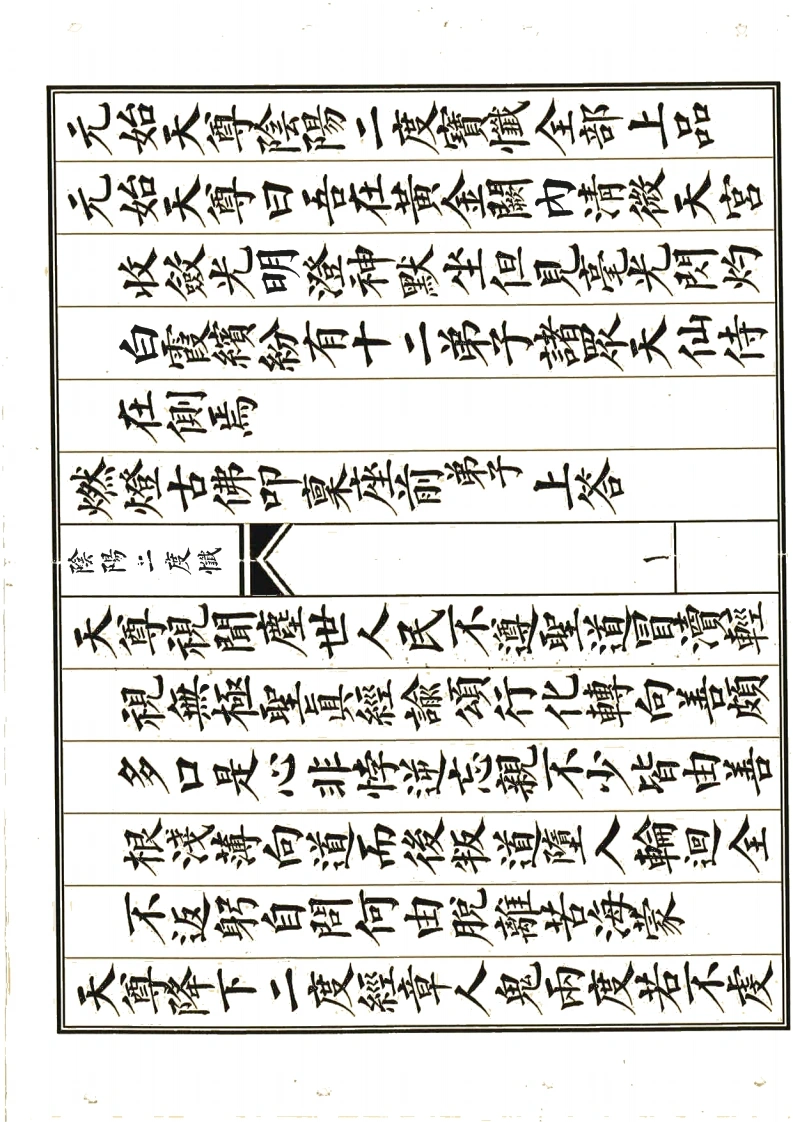 元始天尊陰陽二度寶懺全部上品
元始天尊曰吾在黃金闕內清微天宮
收斂光明澄神默坐但見毫光閃灼
白霞繽紛有十二弟子諸眾天仙侍
在側焉
燃燈古佛叩稟座前弟子上答
陰陽二度懺
一
天尊視聞塵世人民不遵聖道冒瀆輕
視無極聖眞經諭頌行化轉向善頗
多口是心非悖逆忘親不少皆由善
根淺薄向道而後叛道墮入輪迴全
不返躬自問何由脫離苦海蒙
天尊降下二度經章人鬼兩度若不虔